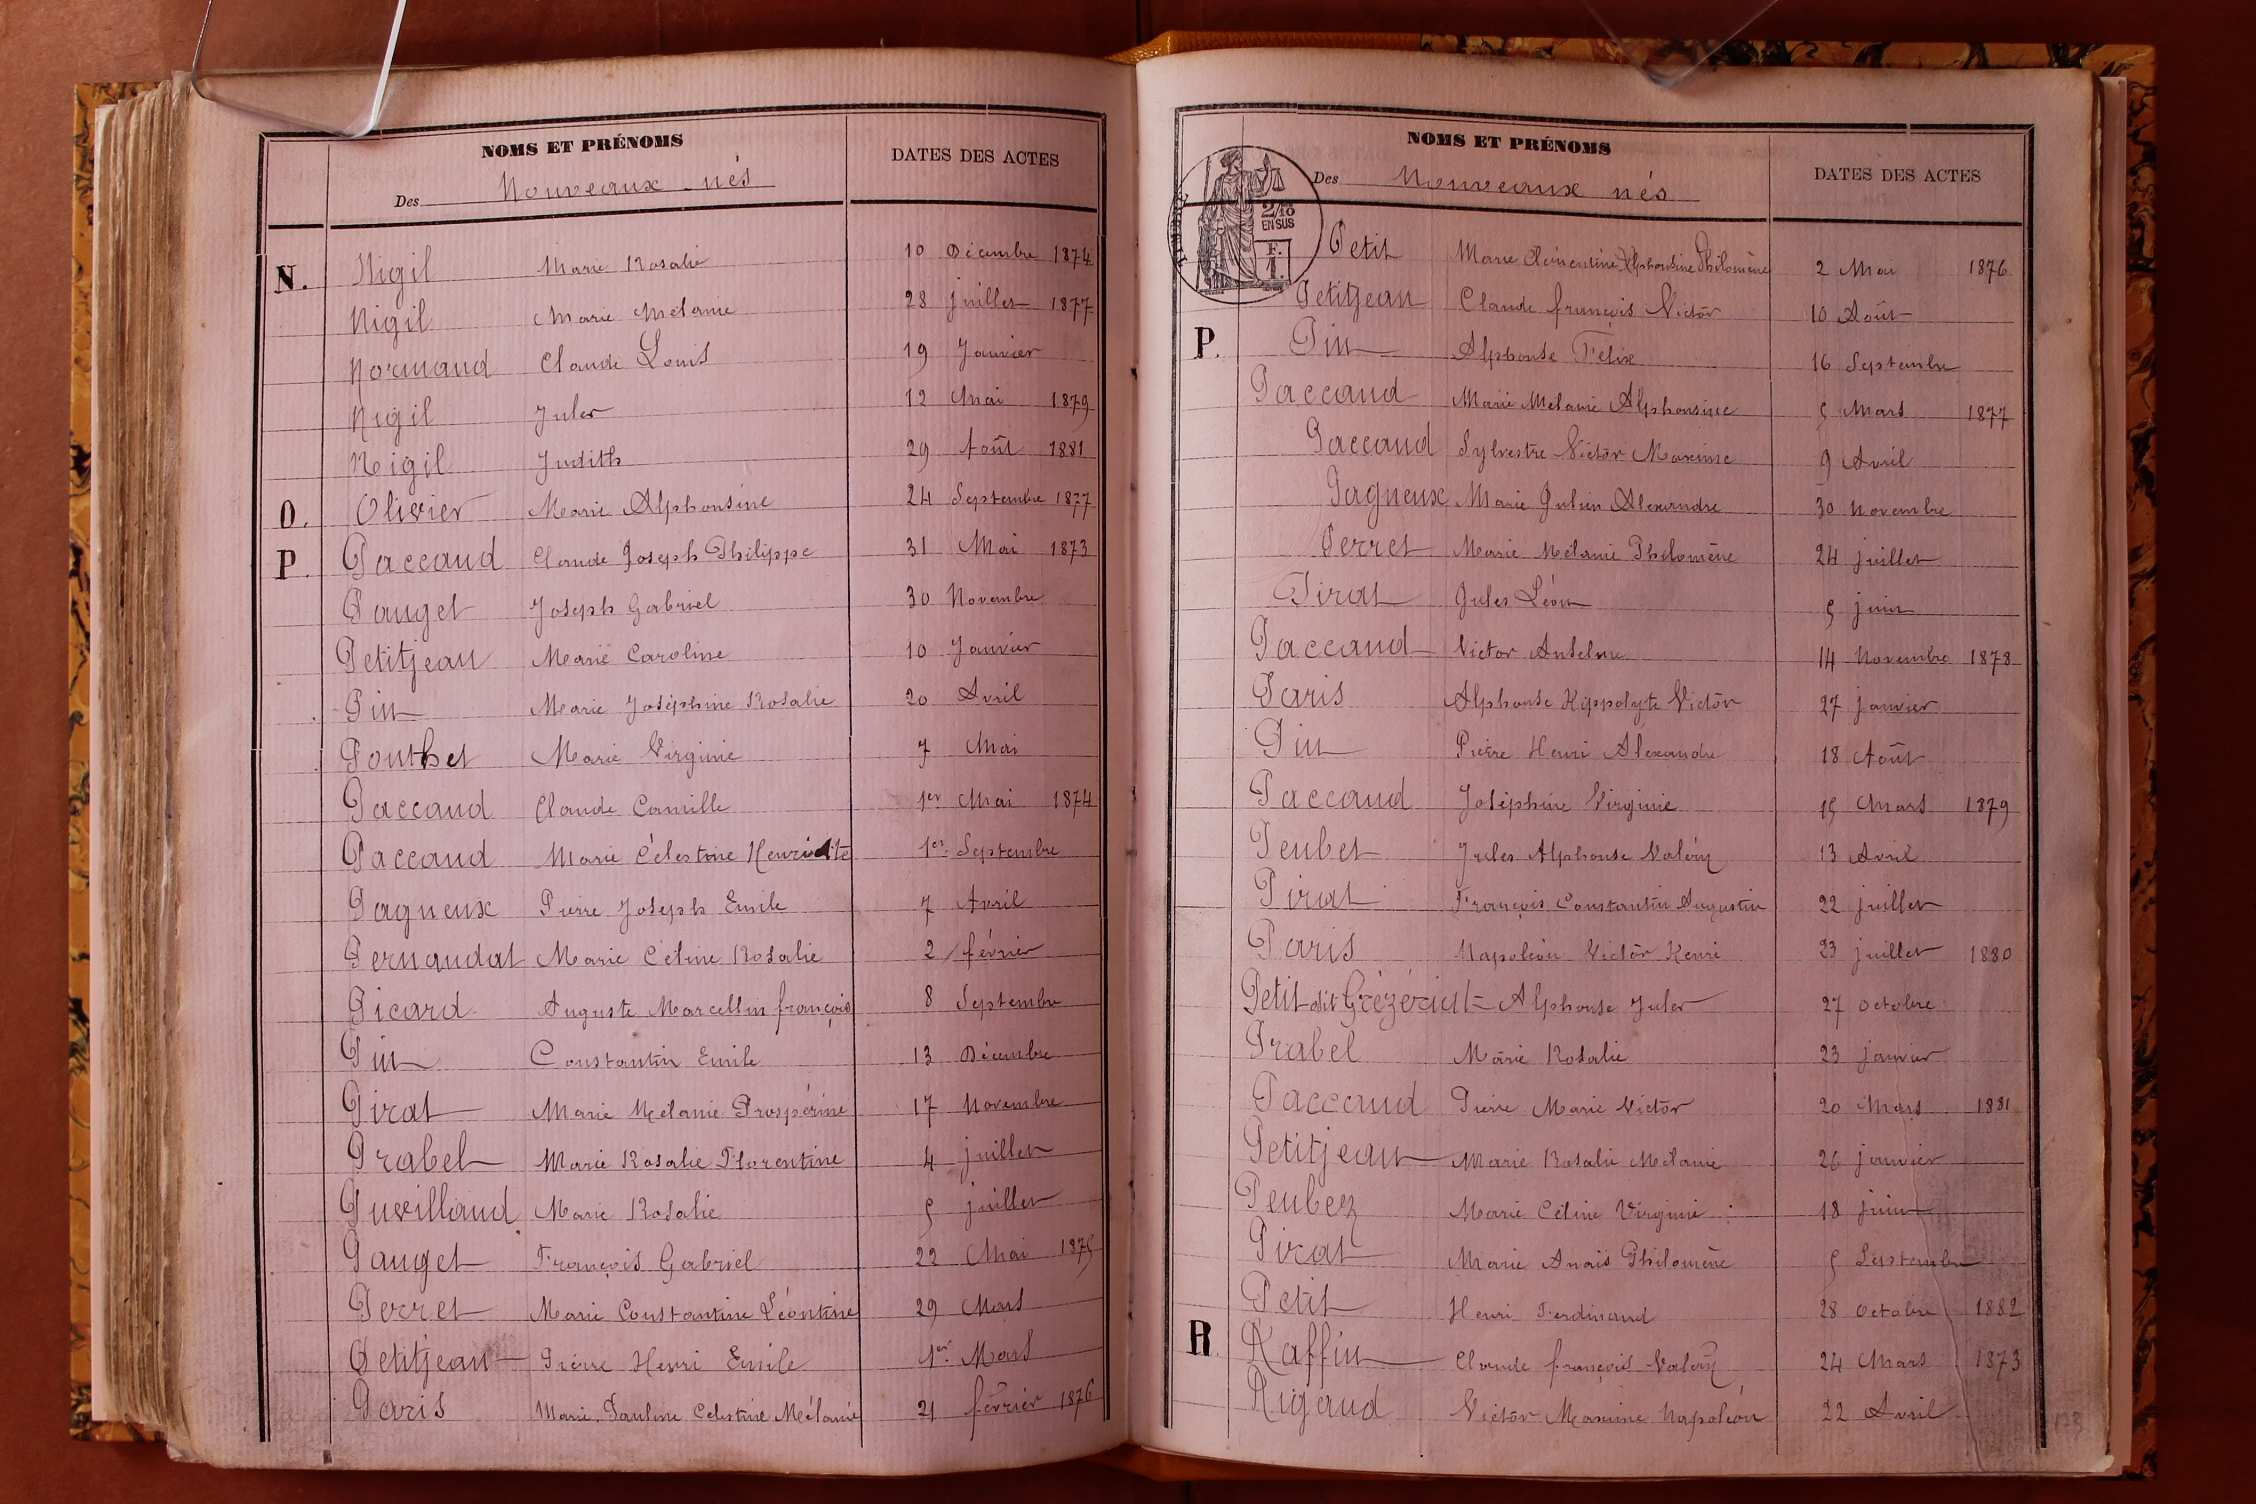 NOMS ET PRÉNOMS
DATES DES ACTES
Des Nouveaux-nés
N. Nigil Marie Rosalie 10 Décembre 1874
Nigil Marie Mélanie 28 juillet 1877
Normand Claude Louis 19 Janvier
Nigil Jules 12 Mai 1879
Nigil Judith 29 Août 1881
O. Olivier Marie Alphonsine 24 Septembre 1877
P. Paccaud Claude Joseph Philippe 31 Mai 1873
Pauget Joseph Gabriel 30 Novembre
Petitjean Marie Caroline 10 Janvier
Pin Marie Joséphine Rosalie 20 Avril
Pouthet Marie Virginie 7 Mai
Paccaud Claude Camille 1er Mai 1874
Paccaud Marie Célestine Henriette 1er Septembre
Pagneux Pierre Joseph Emile 7 Avril
Pernaudat Marie Céline Rosalie 2 février
Picard Auguste Marcellin françois 8 Septembre
Pin Constantin Emile 13 Décembre
Pirat Marie Mélanie Prospérine 17 Novembre
Prabel Marie Rosalie Florentine 4 juillet
Puvilland Marie Rosalie 5 juillet
Pauget François Gabriel 22 Mai 1875
Perret Marie Constantine Léontine 29 Mars
Petitjean Pierre Henri Emile 1er Mars
Paris Marie Pauline Célestine Mélanie 21 février 1876
NOMS ET PRÉNOMS
DATES DES ACTES
Des Nouveaux nés
2/10
EN SUS
F.
1.
Petit Marie Clémentine Alphonsine Philomène 2 Mai 1876
Petitjean Claude françois Victor 10 Août
P. Pin Alphonse Félix 16 Septembre
Paccaud Marie Mélanie Alphonsine 5 Mars 1877
Paccaud Sylvestre Victor Maxime 9 Avril
Pagneux Marie Julien Alexandre 30 Novembre
Perret Marie Mélanie Philomène 24 juillet
Pirat Jules Léon 5 juin
Paccaud Victor Anselme 14 Novembre 1878
Paris Alphonse Hippolyte Victor 27 janvier
Pin Pierre Henri Alexandre 18 Août
Paccaud Joséphine Virginie 15 Mars 1879
Peubet Jules Alphonse Valéry 13 Avril
Pirat François Constantin Augustin 22 juillet
Paris Napoléon Victor Henri 23 juillet 1880
Petit dit Alphonse Jules 27 octobre
Prabel Marie Rosalie 23 janvier
Paccaud Pierre Marie Victor 20 Mars 1881
Petitjean Marie Rosalie Mélanie 26 janvier
Peubez Marie Céline Virginie 18 juin
Pirat Marie Anaïs Philomène 5 Septembre
Petit Henri Ferdinand 28 octobre 1882
R Raffin Claude françois Valéry 24 Mars 1873
Rigaud Victor Maxime Napoléon 22 Avril